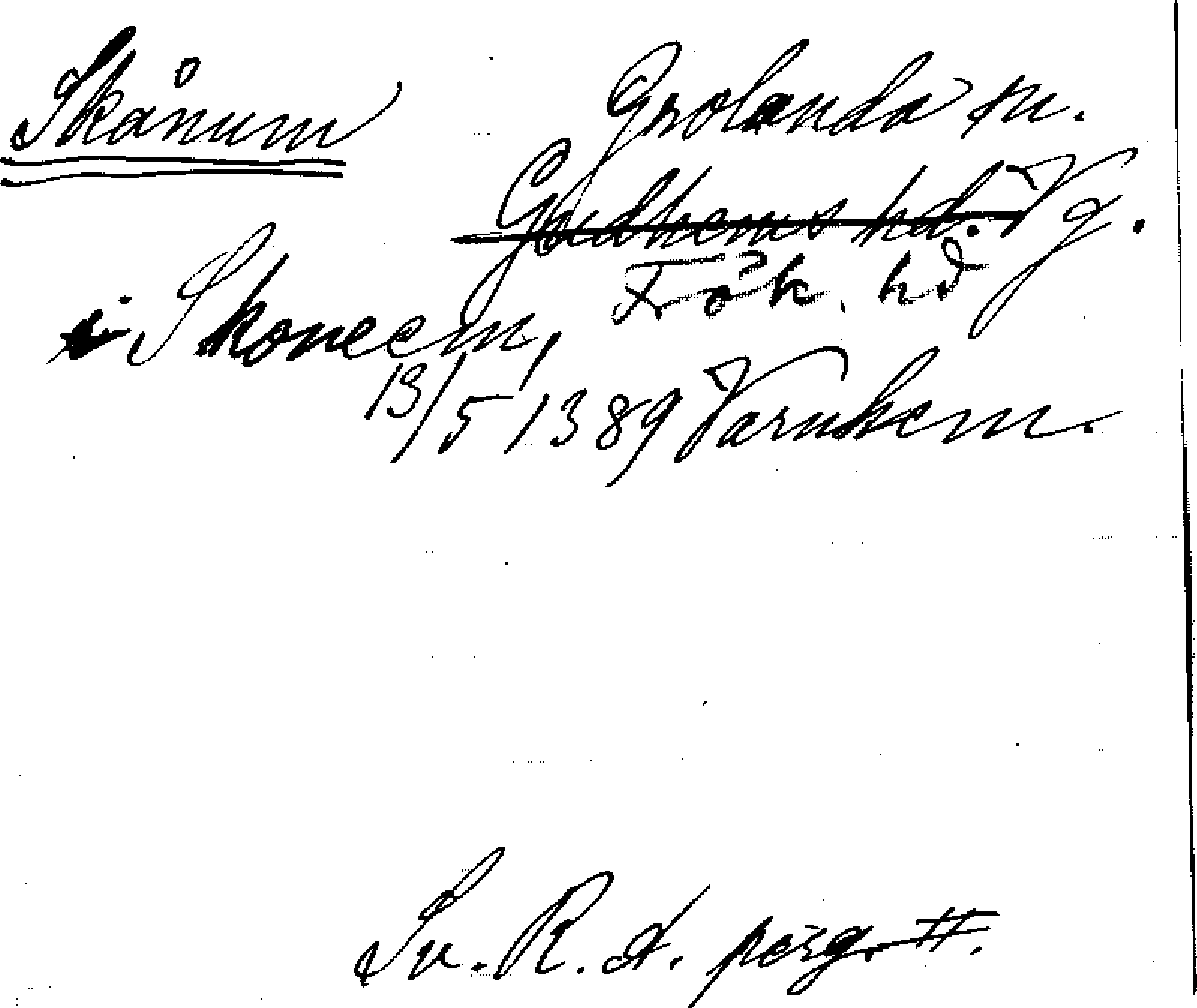 Skånum
Grolanda sn.
Gudhems hd. Vg.
Frök. hd
i Skoneem,
13/5 1389 Varnhem.
Sv. R. A. perg.